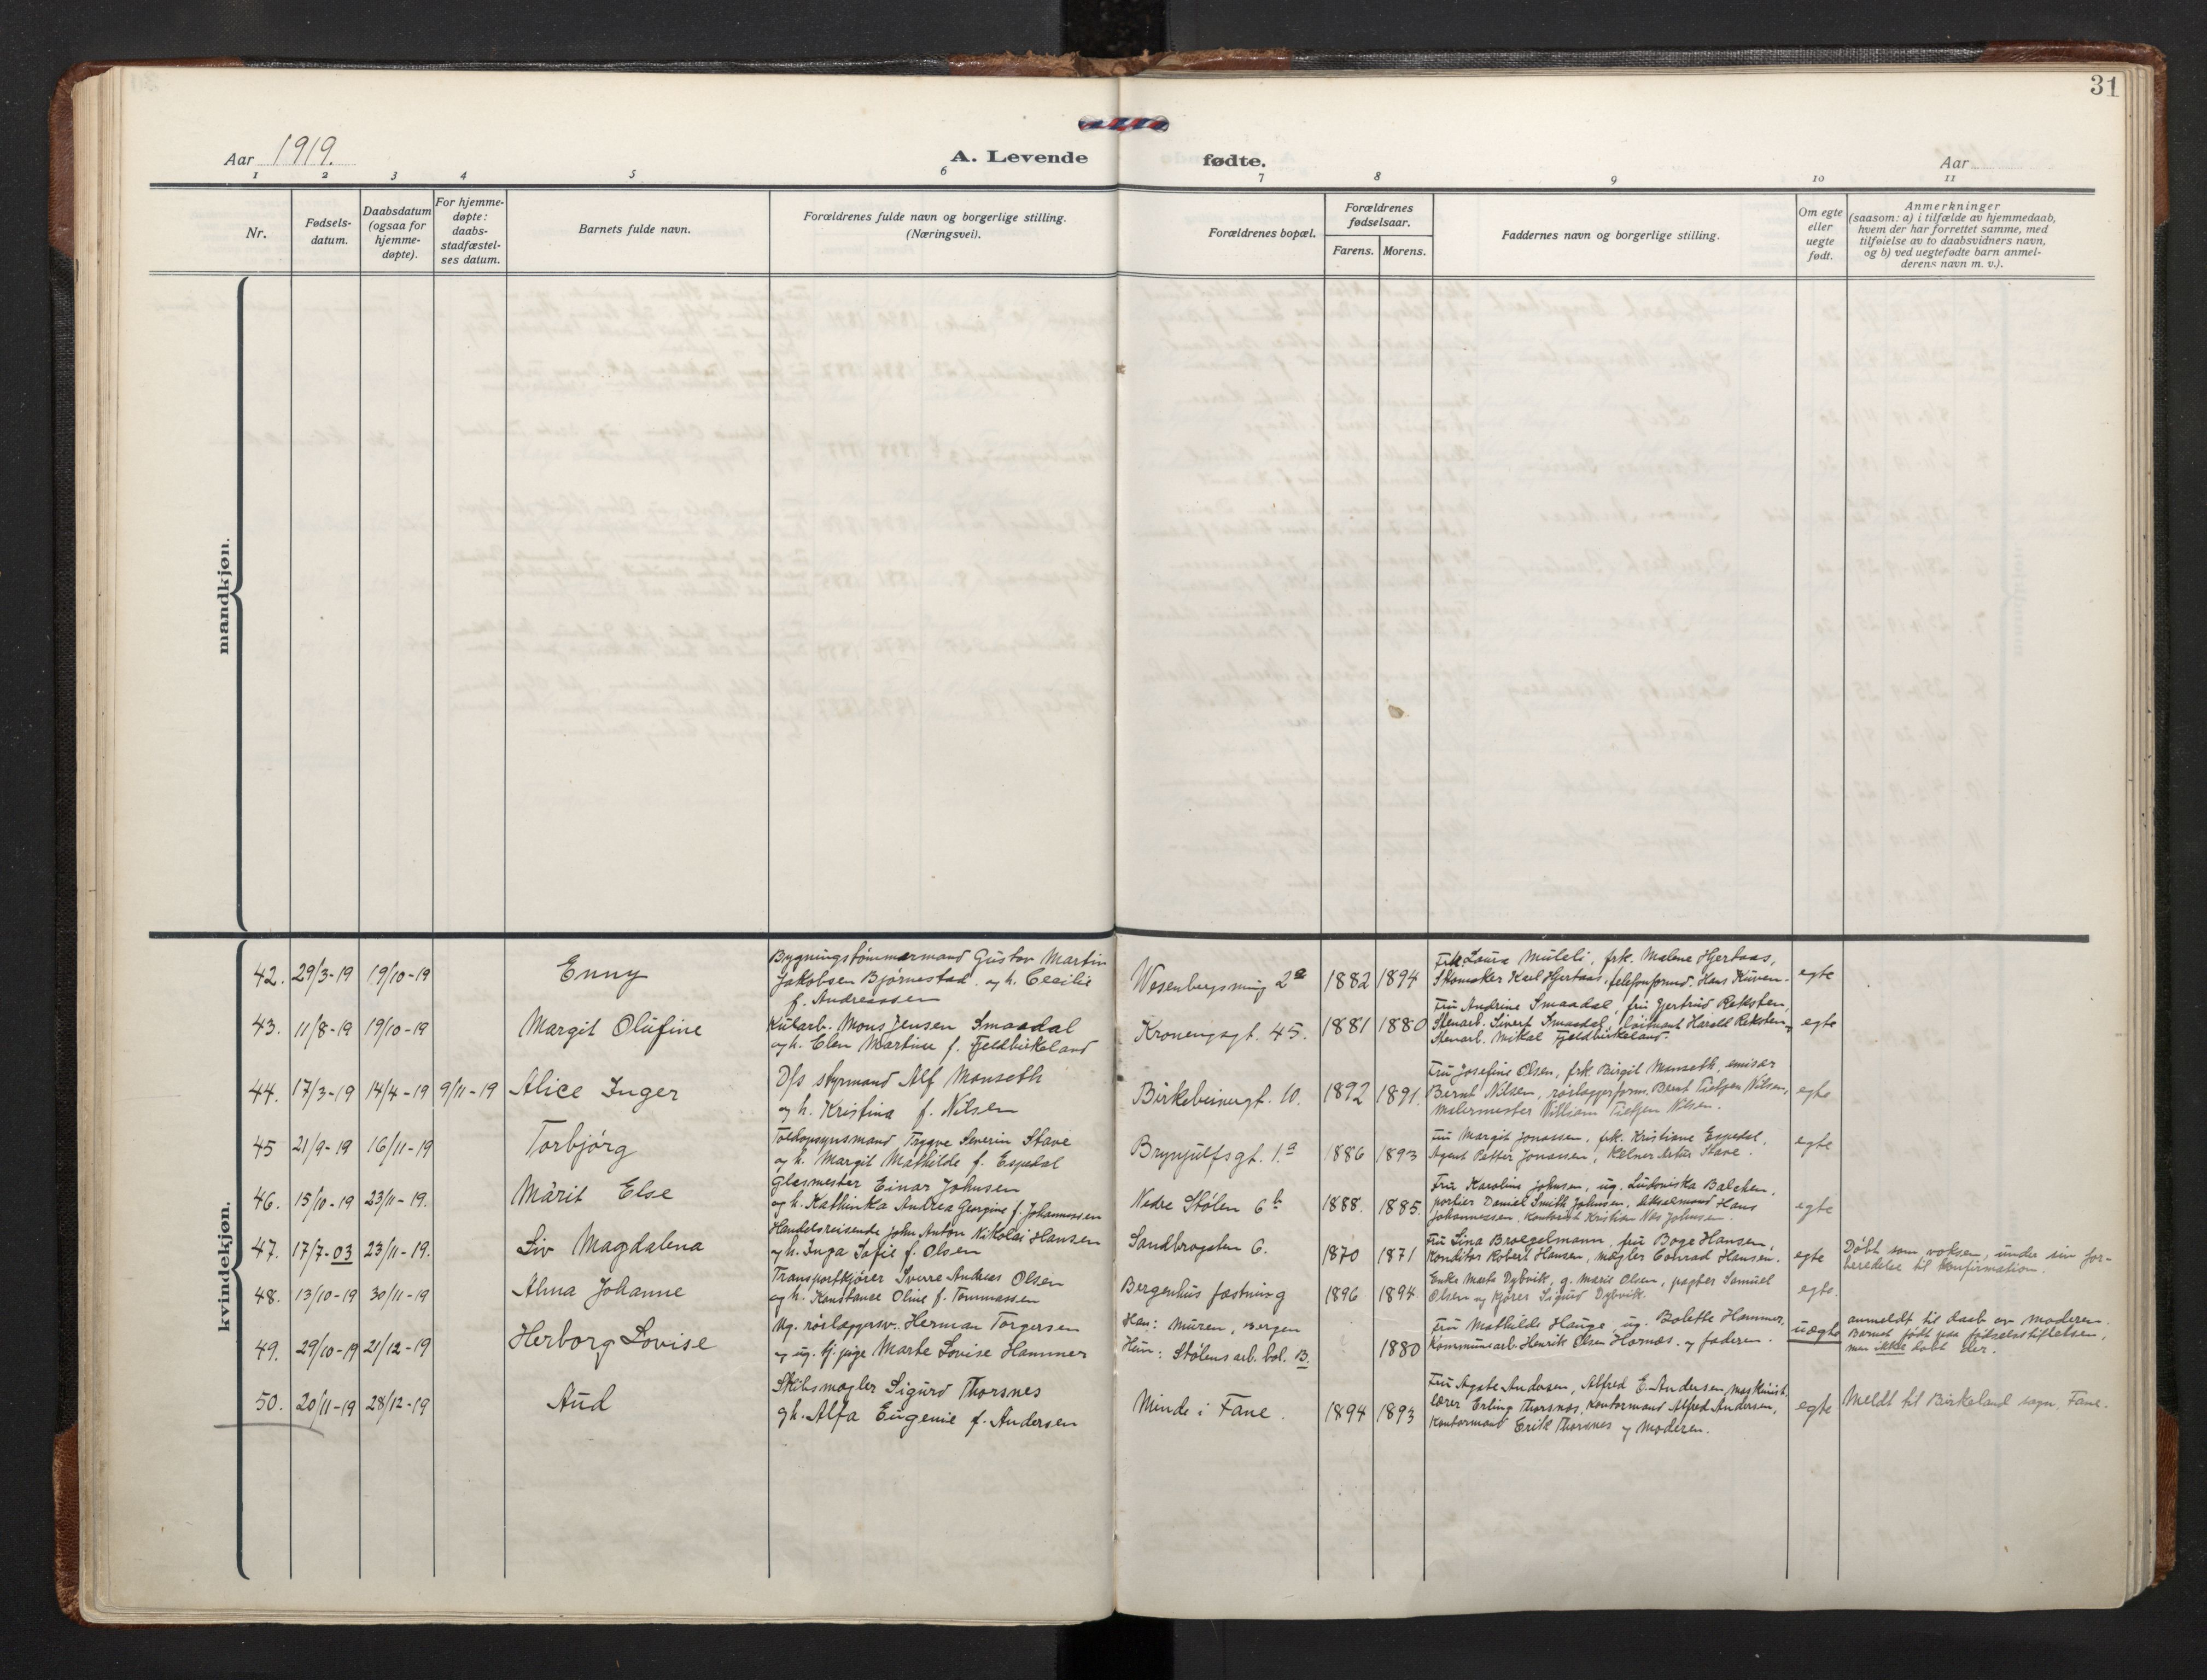 31
Aar 1919.
A. Levende fødte.
Aar
1 2 3 4 5 6 7 8 9 10 11
Nr.
Fødsels-
datum.
Daabsdatum
(ogsaa for
hjemme-
døpte).
For hjemme-
døpte:
daabs-
stadfæstel-
ses datum.
Barnets fulde navn.
Forældrenes fulde navn og borgerlige stilling.
(Næringsvei).
Forældrenes bopæl.
Forældrenes
fødselsaar.
Farens. Morens.
Faddernes navn og borgerlige stilling.
Om egte
eller
uegte
født.
Anmerkninger
(saasom: a) i tilfælde av hjemmedaab,
hvem der har forrettet samme, med
tilføielse av to daabsvidners navn,
og b) ved uegtefødte barn anmel-
derens navn m. v.).
mandkjøn.
kvindekjøn.
42. 29/3-19 19/10-19
Enny
Bygningstömmermand Gustav Martin
Jakobsen Björnestad og h. Cecilie
f. Andreassen
Wesenbergsmug 2a
1882 1894
Frk. Laura Muleli, frk. Malene Hjertaas,
Skomaker Karl Hjertaas, Hans
egte
43. 11/8-19 19/10-19
Margit Olufine
Kularb. Mons Jensen Smaadal
og h. Elen Martine f. Fjeldbirkeland
Kronengsgt. 45.
1881 1880
Fru Andrine Smaadal, fru Gjertrud Reksten,
Stenarb. Sivert Smaadal, löitnant Harald Reksten,
Stenarb. Mikal Fjeldbirkeland.
egte
44. 17/3-19 14/4-19 9/11-19
Alice Inger
D/s styrmand Alf Monseth
og h. Kristina f. Nilsen
Birkebeinergt. 10.
1892 1891.
Fru Josefine Olsen, frk. Birgit Monseth, emisær
Bernt Nilsen, rörlæggerform. Bernt Tietjen Nilsen,
Malermester William Tietjen Nilsen.
egte
45 21/9-19 16/11-19
Torbjörg
Toldopsynsmand Trygve Severin Stave
og h. Margit Mathilde f. Espedal
Brynjulfsgt. 1.a
1886 1893
Fru Margit Jonassen, frk. Kristiane Espedal,
Agent Petter Jonassen, Kelner Artur Stave.
egte
46. 15/10-19 23/11-19.
Märit Else
Glasmester Einar Johnsen
og h. Kathinka Andrea Georgine f. Johannessen
Nedre Stølen 6b
1888. 1885.
Fru Karoline Johnsen, ug. Ludoviska Balchen,
portier Daniel Smith Johnsen, Hans
Johannessen, Kontorist Kristian Johnsen.
egte
47. 17/7-03 23/11-19.
Liv Magdalena
Handelsreisende John Anton Nikolai Hansen
og h. Inga Sofie f. Olsen
Sandbrogaten 6.
1870 1871
Fru Lina Broegelmann, fru Boge Hansen,
Konditor Robert Hansen, mægler Conrad Hansen.
egte
Döbt som voksen, under sin for-
beredelse til konfirmation.
48. 13/10-19 30/11-19
Alma Johanne
Transportkjører Sverre Andreas Olsen
og h. Konstance Oline f. Tommassen
Bergenhus fæstning
1896 1894.
Enke Marta Dybvik, g. Marie Olsen, pagter Samuel
Olsen og Kjører Sigurd Dybvik.
egte.
49. 29/10-19 21/12-19
Herborg Lovise
Ug. rörlæggersv. Herman Torgersen
og ug. tj. pige Marte Lovise Hammer
Han: Muren, Bergen
Hun: Stølens arb. bol. B.
1880
Fru Mathilde Hauge, ug. Bolette Hammer,
Kommunearb. Henrik Olsen Hornæs. og faderen.
uægte
anmeldt til daab av moderen.
Barnet født paa fødselsstiftelsen,
men ikke døbt der.
50. 20/11-19 28/12-19
Aud
Skibsmægler Sigurd Thorsnes
og h. Alfa Eugenie f. Andersen
Minde i Fane.
1894 1893
Fru Agate Andersen, Alfred E. Andersen, maskinist
lærer Erling Thorsnes, Kontormand Alfred Andersen,
Kontormand Erik Thorsnes og Moderen.
egte
Meldt til Birkeland sogn, Fane.